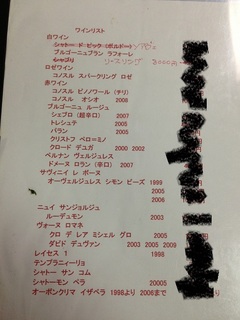 ワインリスト
白ワイン
シャトー ド ビック (ボルドー)
ブルゴーニュブラン ラフォーレ
シャブリ リースリング 3000
ロゼワイン
コノスル スパークリング ロゼ
赤ワイン
コノスル ピノノワール (チリ)
コノスル オシオ 2008
ブルゴーニュ ルージュ
シュブロ (超辛口) 2007
トレシュテ 2005
バラン 2005
クリストフ ペローミノ
クロード デュガ 2000 2002
ペルナン ヴェルジュレス
ドメーヌ ロラン (辛口) 2007
サヴィニイ レ ボーヌ
オーヴェルジュレス シモン ビーズ 1999
2005
2005
ニュイ サンジョルジュ
ルーデュモン 2003
ヴォーヌ ロマネ
クロ デ レア ミシェル グロ 2005
ダビド デュヴァン 2003 2005 2009
レイセス 1 1998
テンプラニィーリョ
シャトー サン コム
シャトーモン ペラ 20005
オーボンクリマ イザベラ 1998より 2006まで より